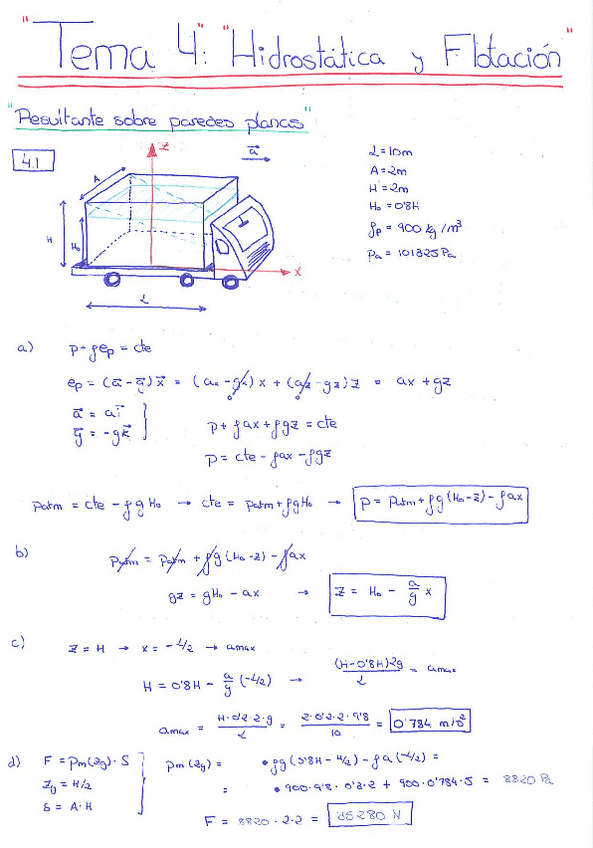 "Tema 4: "Hidrostática y Flotación"
"Resultante sobre paredes planas"
4.1
z
a⃗
A
H
H₀
L
x
L = 10m
A = 2m
H = 2m
H₀ = 0'8H
ρp = 900 kg/m³
Pa = 101325 Pa
a) p + ρep = cte
ep = (a⃗ - g⃗) x⃗ = (ax - gx) x + (az - gz) z = ax + gz
0 0
a⃗ = a i⃗
g⃗ = -g k⃗
p + ρax + ρgz = cte
p = cte - ρax - ρgz
Patm = cte - ρgH₀ → cte = Patm + ρgH₀ → p = Patm + ρg(H₀-z) - ρax
b) Patm = Patm + ρg(H₀-z) - ρax
gz = gH₀ - ax → z = H₀ - a/g x
c) z = H → x = -L/2 → amax
H = 0'8H - a/g (-L/2) → (H-0'8H)2g/L = amax
amax = H·0'2·2·g/L = 2·0'2·2·9'8/10 = 0'784 m/s²
d) F = Pm(zg)·S
zg = H/2
S = A·H
Pm(zg) = • ρg(0'8H - H/2) - ρa(-L/2) =
= • 900·9'8·0'3·2 + 900·0'784·5 = 8820 Pa
F = 8820·2·2 = 35280 N